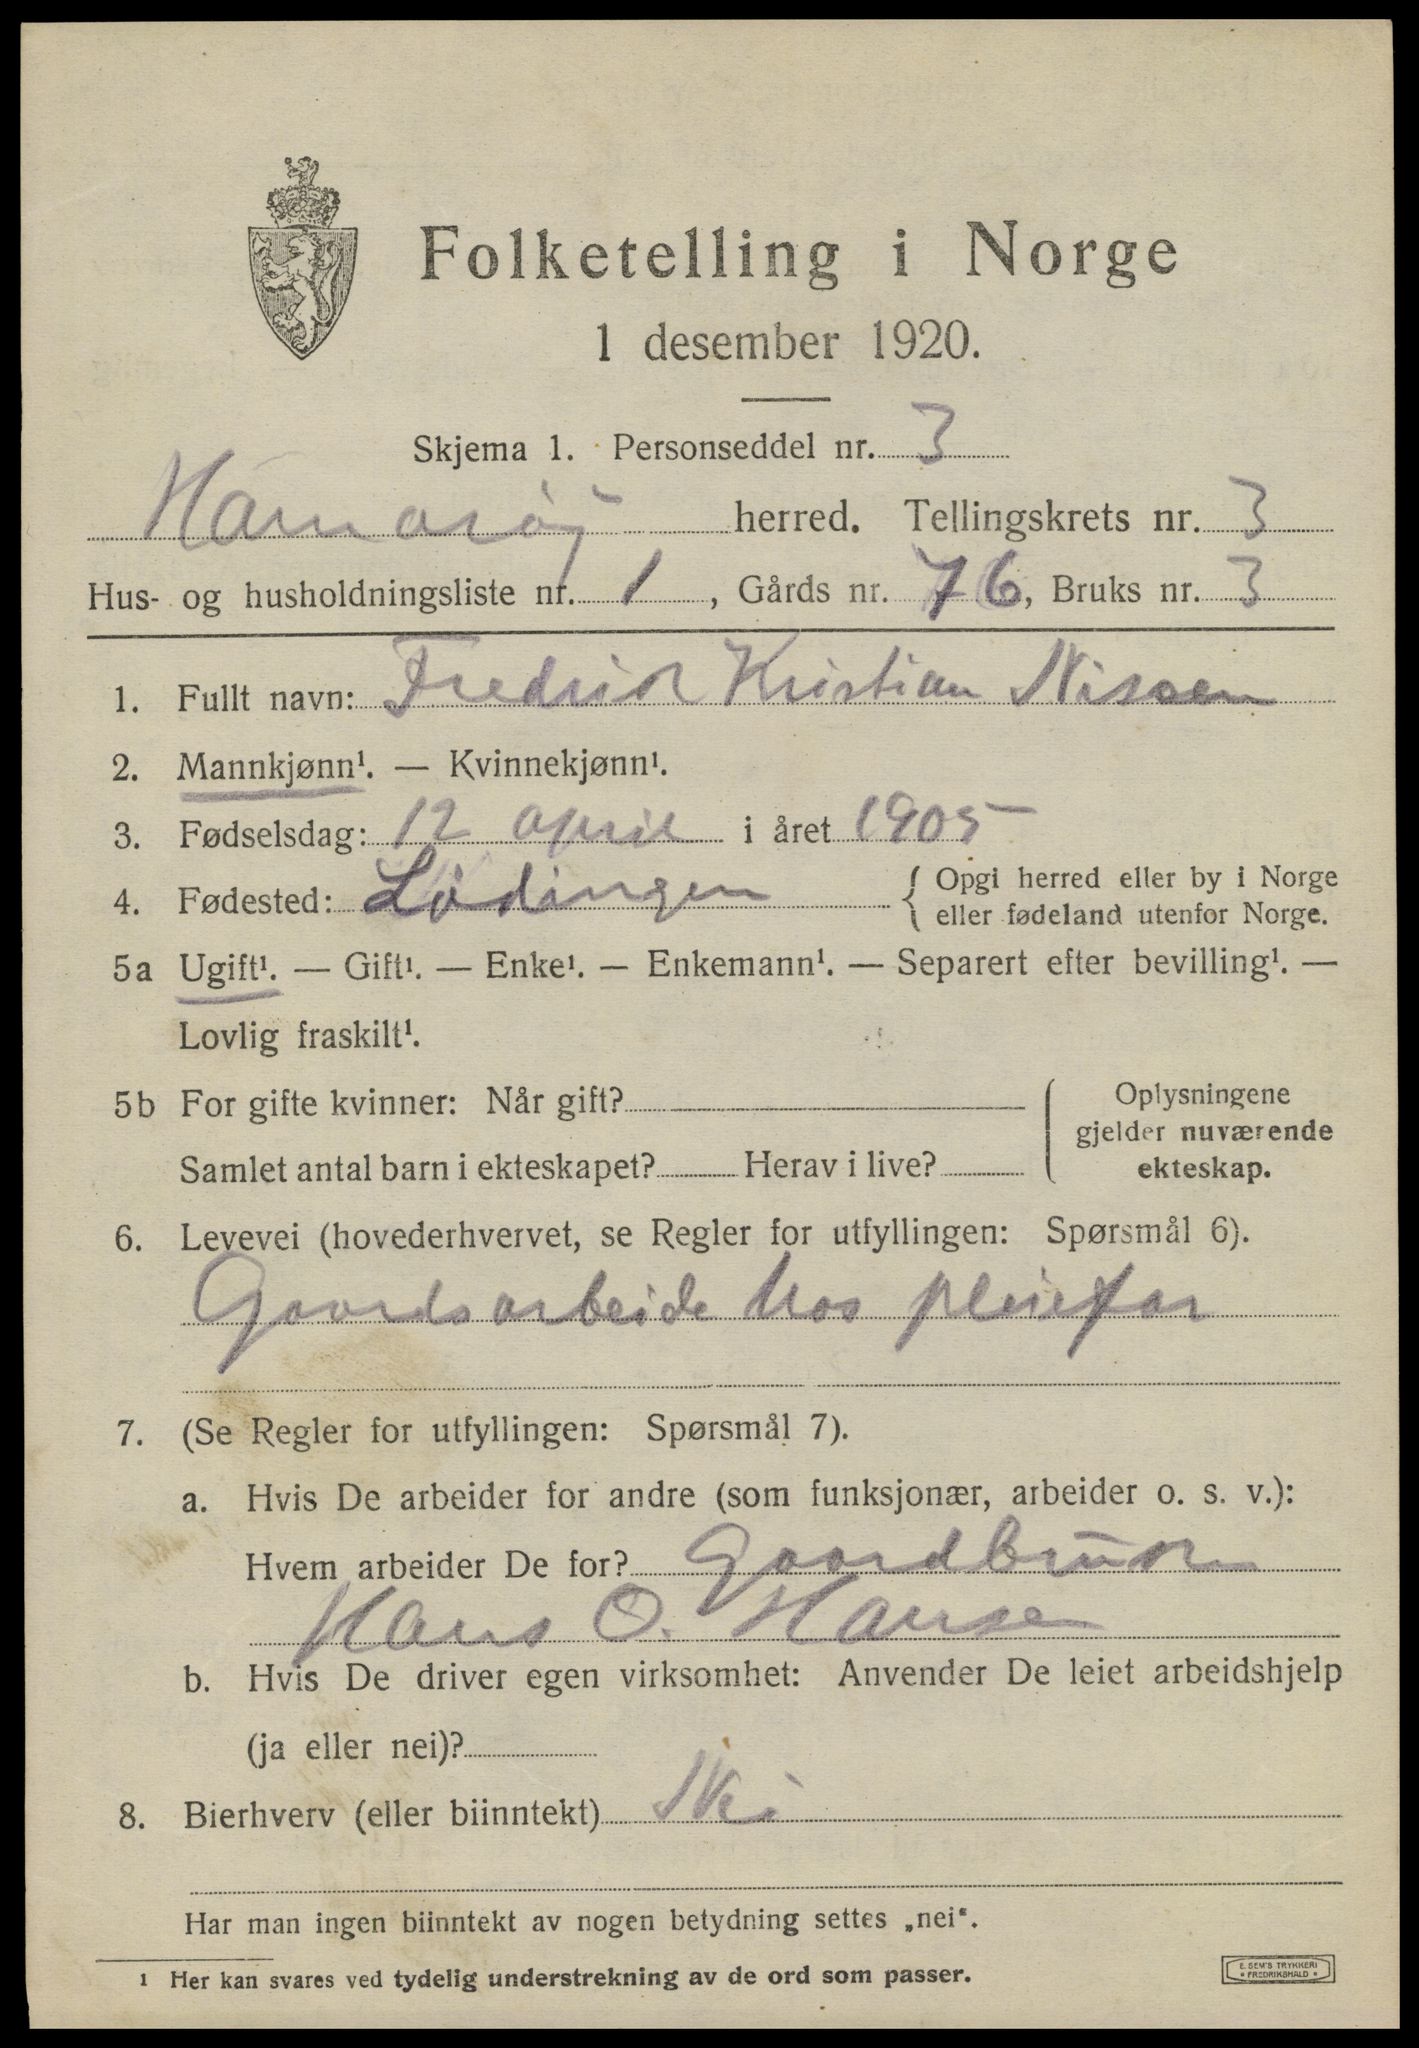 Folketelling i Norge
1 desember 1920.
Skjema 1. Personseddel nr. 3
Hamarøy herred. Tellingskrets nr. 3
Hus- og husholdningsliste nr. 1, Gårds nr. 76, Bruks nr. 3
1. Fullt navn: Fredrik Kristian Nissen
2. Mannkjønn¹. — Kvinnekjønn¹.
3. Fødselsdag: 12 april i året 1905
4. Fødested: Lødingen { Opgi herred eller by i Norge
eller fødeland utenfor Norge.
5a Ugift¹. — Gift¹. — Enke¹. — Enkemann¹. — Separert efter bevilling¹. —
Lovlig fraskilt¹.
5b For gifte kvinner: Når gift? { Oplysningene
gjelder nuværende
Samlet antal barn i ekteskapet? Herav i live? ekteskap.
6. Levevei (hovederhvervet, se Regler for utfyllingen: Spørsmål 6).
Gaardsarbeide hos pleiefar
7. (Se Regler for utfyllingen: Spørsmål 7).
a. Hvis De arbeider for andre (som funksjonær, arbeider o. s. v.):
Hvem arbeider De for? Gaardbruker
Hans O. Hansen
b. Hvis De driver egen virksomhet: Anvender De leiet arbeidshjelp
(ja eller nei)?
8. Bierhverv (eller biinntekt) Nei
Har man ingen biinntekt av nogen betydning settes „nei“.
1 Her kan svares ved tydelig understrekning av de ord som passer.
E. SEM'S TRYKKERI
* FREDRIKSHALD *